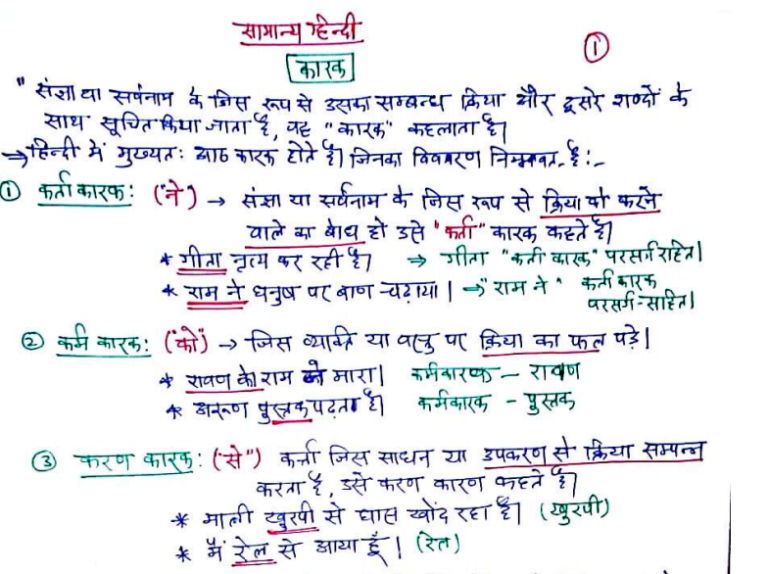 सामान्य हिन्दी
①
कारक
"संज्ञा या सर्वनाम के जिस रूप से उसका सम्बन्ध क्रिया और दूसरे शब्दों के
साथ सूचित किया जाता है, वह "कारक" कहलाता है।
→ हिन्दी में मुख्यतः आठ कारक होते है। जिनका विवरण निम्नवत् है:-
① कर्ता कारक: ("ने") → संज्ञा या सर्वनाम के जिस रूप से क्रिया को करने
वाले का बोध हो उसे "कर्ता" कारक कहते है।
* गीता नृत्य कर रही है। ⇒ गीता "कर्ता कारक" परसर्ग रहित।
* राम ने धनुष पर बाण चढ़ाया। → "राम ने" कर्ता कारक
परसर्ग-सहित।
② कर्म कारक: ("को") → जिस व्यक्ति या वस्तु पर क्रिया का फल पड़े।
* रावण को राम ने मारा। कर्मकारक – रावण
* अरूण पुस्तक पढ़ता है। कर्मकारक - पुस्तक
③ करण कारक: ("से") कर्ता जिस साधन या उपकरण से क्रिया सम्पन्न
करता है, उसे करण कारण कहते है।
* माली खुरपी से घास खोंद रहा है। (खुरपी)
* मैं रेल से आया हूँ। (रेल)